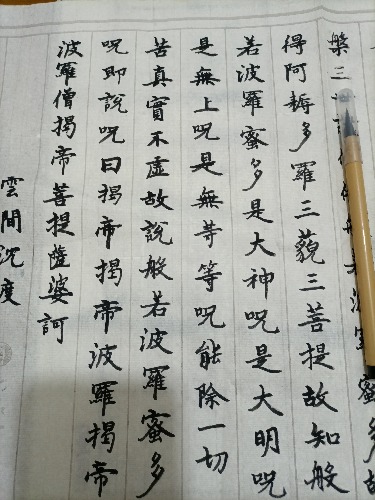 槃三若波蜜多故
得阿耨多羅三藐三菩提故知般
若波羅蜜多是大神呪是大明呪
是無上呪是無等等呪能除一切
苦真實不虛故說般若波羅蜜多
呪即說呪曰揭帝揭帝波羅揭帝
波羅僧揭帝菩提薩婆訶
雲間沈度